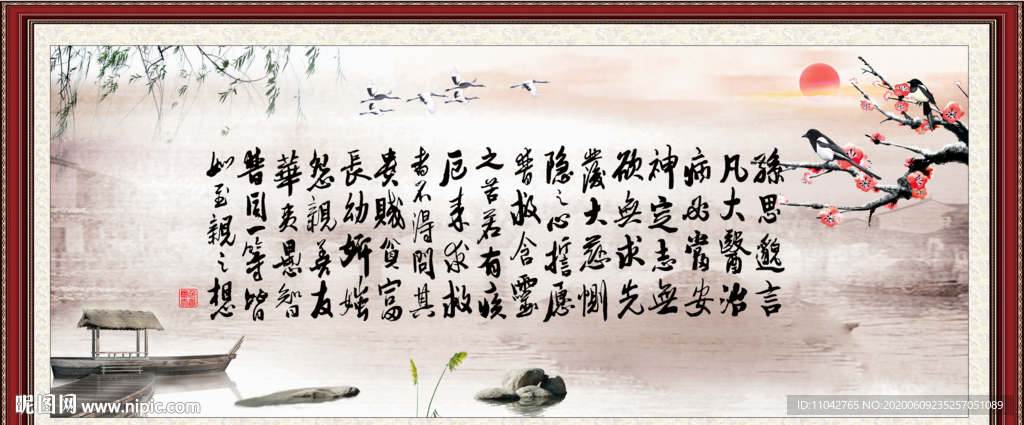 孫思邈言
凡大醫治
病必當安
神定志無
欲無求先
發大慈惻
隐之心誓愿
普救含靈
之苦若有疾
厄来求救
者不得問其
貴賤貧富
長幼妍媸
怨親善友
華夷愚智
普同一等皆
如至親之想
昵图网 www.nipic.com
ID:11042765 NO:20200609235257051089